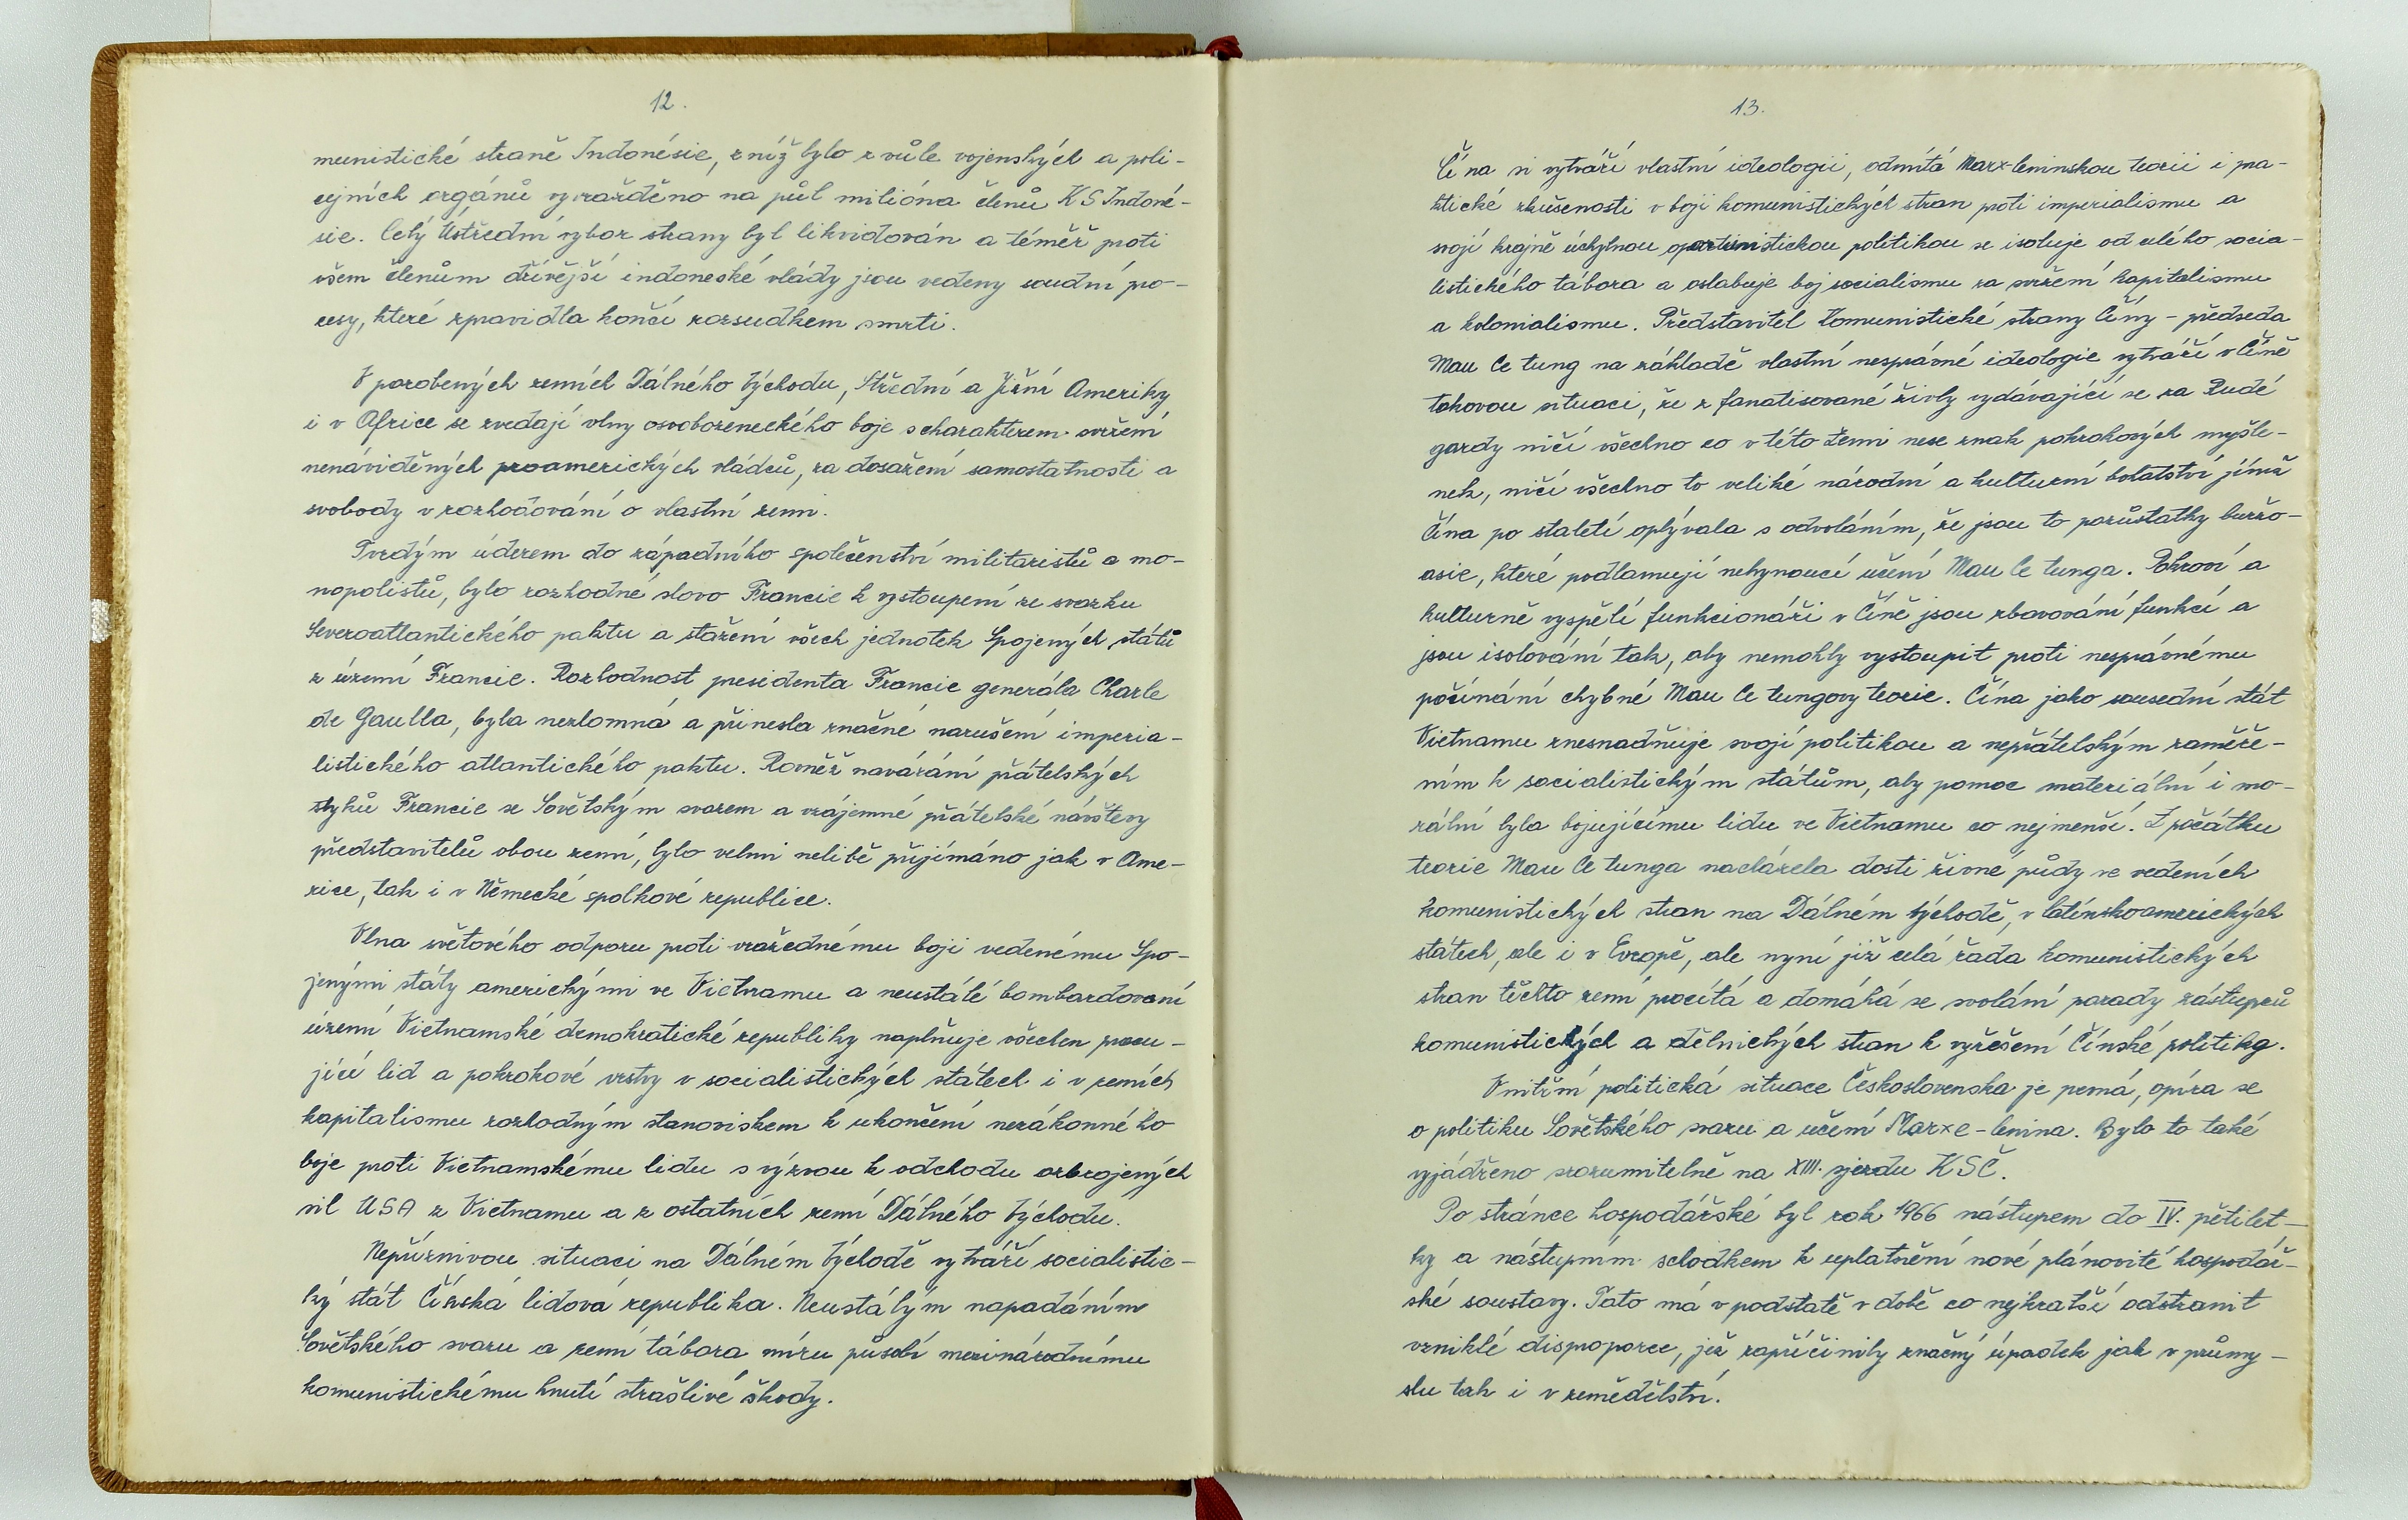 12.
munistické straně Indonésie, z níž bylo z vůle vojenských a poli-
cejních orgánů vyvražděno na půl milióna členů KS Indoné-
sie. Celý Ústřední výbor strany byl likvidován a téměř proti
všem členům dřívější indoneské vlády jsou vedeny soudní pro-
cesy, které zpravidla končí rozsudkem smrti.
V porobených zemích Dálného Východu, Střední a Jižní Ameriky
i v Africe se zvedají vlny osvobozeneckého boje s charakterem svržení
nenáviděných proamerických vládců, za dosažení samostatnosti a
svobody v rozhodování o vlastní zemi.
Tvrdým úderem do západního společenství militaristů a mo-
nopolistů, bylo rozhodné slovo Francie k vystoupení ze svazku
Severoatlantického paktu a stažení všech jednotek Spojených států
z území Francie. Rozhodnost presidenta Francie generála Charle
de Gaulla, byla nezlomná a přinesla značné narušení imperia-
listického atlantického paktu. Rovněž navázání přátelských
styků Francie se Sovětským svazem a vzájemné přátelské návštevy
představitelů obou zemí, bylo velmi nelibě přijímáno jak v Ame-
rice, tak i v Německé spolkové republice.
Vlna světového odporu proti vražednému boji vedenému Spo-
jenými státy americkými ve Vietnamu a neustálé bombardování
území Vietnamské demokratické republiky naplňuje všechen pracu-
jící lid a pokrokové vrstvy v socialistických státech i v zemích
kapitalismu rozhodným stanoviskem k ukončení nezákonného
boje proti Vietnamskému lidu s výzvou k odchodu ozbrojených
sil USA z Vietnamu a z ostatních zemí Dálného Východu.
Nepříznivou situaci na Dálném Východě vytváří socialistic-
ký stát Čínská lidová republika. Neustálým napadáním
Sovětského svazu a zemí tábora míru působí mezinárodnímu
komunistickému hnutí strašlivé škody.
13.
Čína si vytváří vlastní ideologii, odmítá Marx-leninskou teorii i pra-
ktické zkušenosti v boji komunistických stran proti imperialismu a
svojí krajně úchylnou oportunistickou politikou se isoluje od celého socia-
listického tábora a oslabuje boj socialismu za svržení kapitalismu
a kolonialismu. Představitel Komunistické strany Číny - předseda
Mau Ce tung na základě vlastní nesprávné ideologie vytváří v Číně
takovou situaci, že z fanatisované živly vydávající se za Rudé
gardy ničí všechno co v této zemi nese znak pokrokových myšle-
nek, ničí všechno to veliké národní a kulturní bohatství jímž
Čína po staletí oplývala s odvoláním, že jsou to pozůstatky buržo-
asie, které podlamují nehynoucí učení Mau Ce tunga. Pokroví a
kulturně vyspělí funkcionáři v Číně jsou zbavování funkcí a
jsou isolování tak, aby nemohly vystoupit proti nesprávnému
počínání chybné Mau Ce tungovy teorie. Čína jako sousední stát
Vietnamu znesnadňuje svojí politikou a nepřátelským zaměře-
ním k socialistickým státům, aby pomoc materiální i mo-
rální byla bojujícímu lidu ve Vietnamu co nejmenší. Z počátku
teorie Mau Ce tunga nacházela dosti živné půdy ve vedeních
komunistických stran na Dálném Východě, v latinskoamerických
státech, ale i v Evropě, ale nyní již celá řada komunistických
stran těchto zemí procitá a domáhá se svolání porady zástupců
komunistických a dělnických stran k vyřešení Čínské politiky.
Vnitřní politická situace Československa je pevná, opíra se
o politiku Sovětského svazu a učení Marxe-lenina. Bylo to také
vyjádřeno srozumitelně na XIII. sjezdu KSČ.
Po stránce hospodářské byl rok 1966 nástupem do IV. pětilet-
ky a nástupním schodkem k uplatnění nové plánovité hospodář-
ské soustavy. Tato má v podstatě v době co nejkratší odstranit
vzniklé disproporce, jež zapříčinily značný úpadek jak v průmy-
slu tak i v zemědělství.